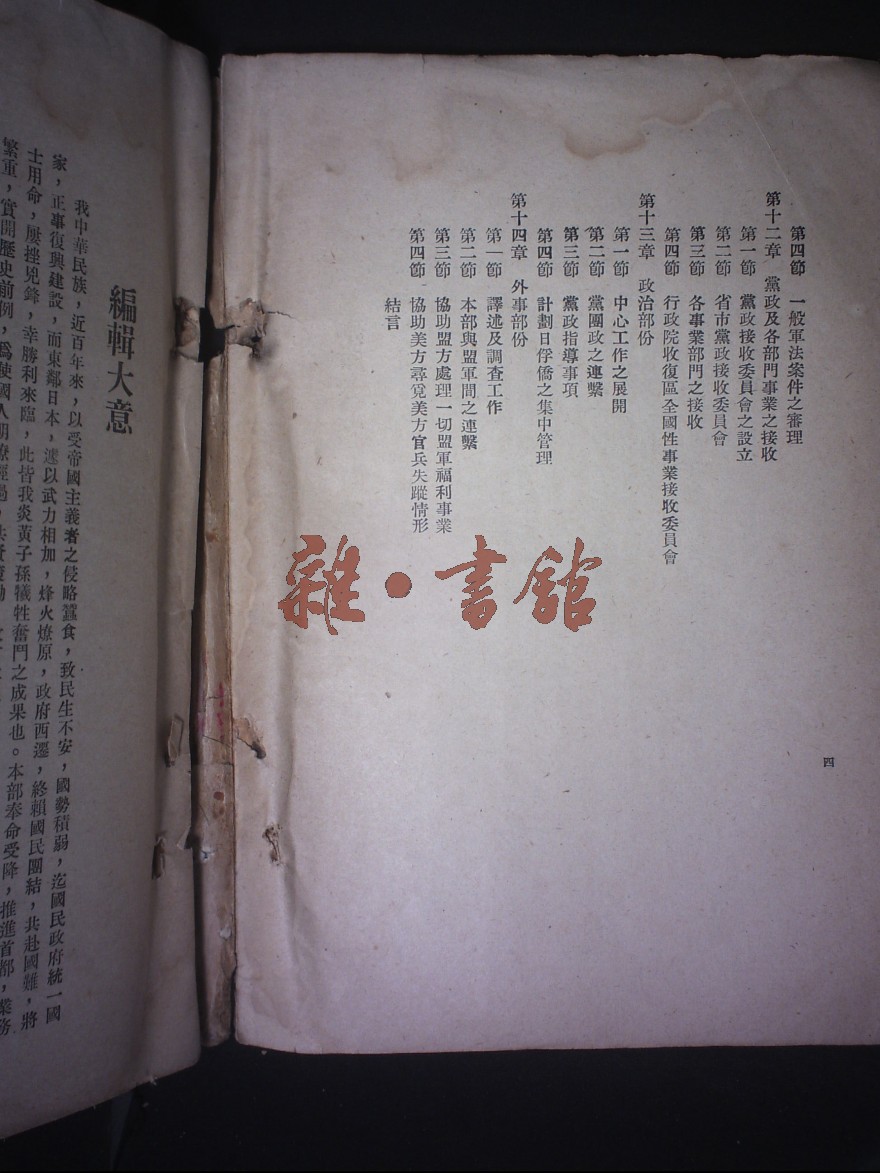 第四節 一般軍法案件之審理
第十二章 黨政及各部門事業之接收
第一節 黨政接收委員會之設立
第二節 省市黨政接收委員會
第三節 各事業部門之接收
第四節 行政院收復區全國性事業接收委員會
第十三章 政治部份
第一節 中心工作之展開
第二節 黨團政之連繫
第三節 黨政指導事項
第四節 計劃日俘僑之集中管理
第十四章 外事部份
第一節 譯述及調查工作
第二節 本部與盟軍間之連繫
第三節 協助盟方處理一切盟軍福利事業
第四節 協助美方尋覓美方官兵失蹤情形
結言
四
雜·書館
編輯大意
我中華民族，近百年來，以受帝國主義者之侵略蠶食，致民生不安，國勢積弱，迄國民政府統一國
家，正事復興建設，而東鄰日本，遽以武力相加，烽火燎原，政府西遷，終賴國民團結，共赴國難，將
士用命，屢挫兇鋒，幸勝利來臨，此皆我炎黃子孫犧牲奮鬥之成果也。本部奉命受降，推進首都，業務
繁重，實開歷史前例，爲使國人明瞭經過，共資